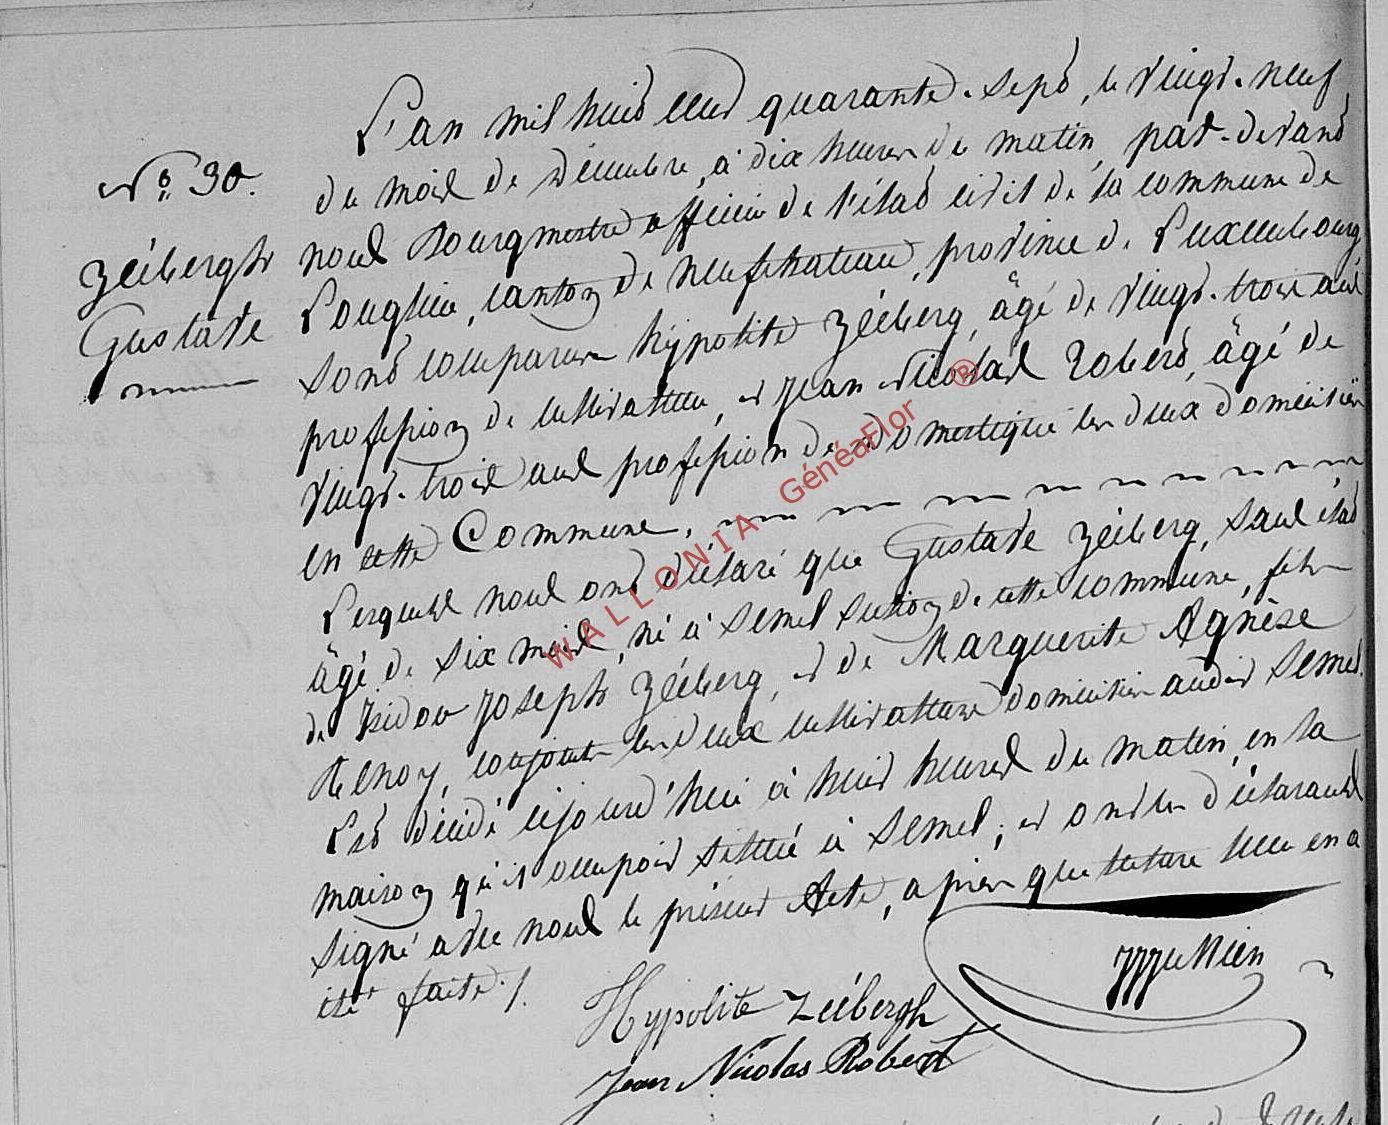 L'an mil huit cent quarante-sept, le vingt-neuf
du mois de décembre, à dix heures de matin, par-devant
nous Bourgmestre officier de l'état civil de la commune de
Longlier, canton de neufchateau, province de Luxembourg
sont comparu hypolite Zéeberg, âgé de vingt-trois ans
profession de cultivateur, et Jean Nicolas Robert, âgé de
vingt-trois ans profession de domestique les deux domiciliés
en cette Commune.
Lesquels nous ont déclaré que Gustave Zéeberg, sans état
âgé de six mois, né à Semel section de cette commune, fils
de Isidor Joseph Zéeberg, et de Marguerite Agnèse
conjoints les deux cultivateurs domiciliés audit Semel.
Est décédé cejourd'hui à huit heures du matin, en la
maison qu'il occupoit située à Semel; et ont les déclarants
signé avec nous le présent Acte, après que lecture leur en a
été faite ./.
N° 30.
Zéebergh
Gustave
Hypolite Zéebergh
Jean Nicolas Robert
WALLONIA GénéaFlor ®